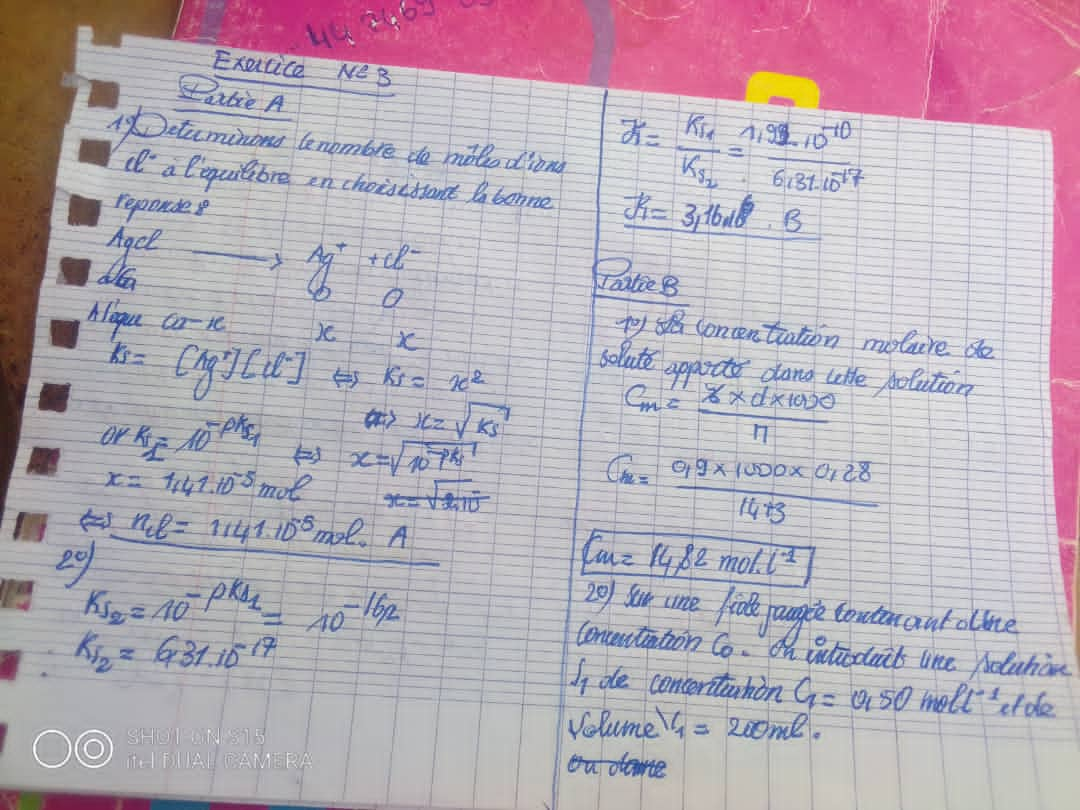 44 7469
Exercice N° 3
Partie A
1°) Determinons le nombre de môles d'ions
Cl⁻ à l'équilibre en choisissant la bonne
reponse :
AgCl → Ag⁺ + Cl⁻
0 0
A l'équi x x
Ks = [Ag⁺][Cl⁻] ⇔ Ks = x²
⇔ x = √Ks
or Ks₁ = 10^-pKs₁ ⇔ x = √10^-pKs
x = 1,41.10⁻⁵ mol
⇔ ncl = 1,41.10⁻⁵ mol. A
2°)
Ks₂ = 10^-pKs₂ = 10^-16,2
Ks₂ = 6,31.10⁻¹⁷
K = Ks₁ / Ks₂ = 1,99.10⁻¹⁰ / 6,31.10⁻¹⁷
K = 3,16.10⁶ . B
Partie B
1°) La concentration molaire de
soluté apporté dans cette solution
Cm = % × d × 1000 / M
Cm = 0,9 × 1000 × 0,28 / 14+3
Cm = 14,82 mol.l⁻¹
2°) Sur une fiole jaugée contenant d'une
concentration C₀. On introduit une solution
S₁ de concentration C₁ = 0,50 mol.l⁻¹ et de
Volume V₁ = 200ml.
ou donne
SHOT ON S15
itel DUAL CAMERA